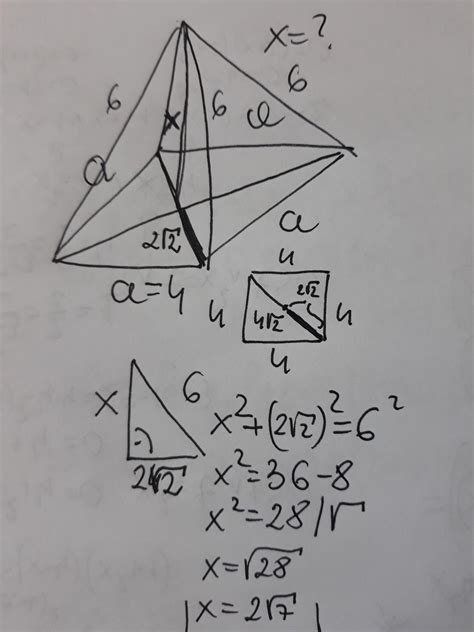 x=?
6
6
x
6
a
a
2√2
a
a=4
4
2√2
4
4√2
4
4
x
6
2√2
x²+(2√2)²=6²
x²=36-8
x²=28/√
x=√28
|x=2√7|